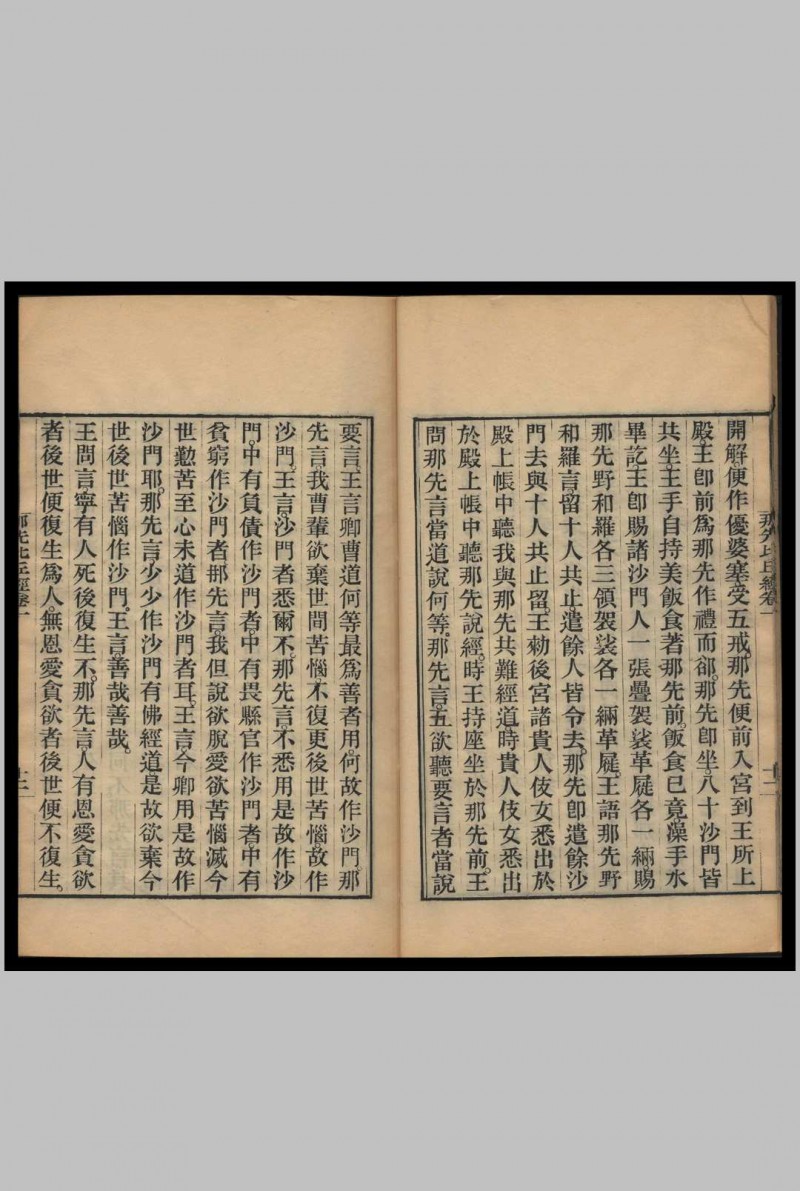 那先比丘經卷一
十二
開解。便作優婆塞。受五戒。那先便前入宮到王所上
殿。王卽前爲那先作禮而郤。那先卽坐。八十沙門皆
共坐。王手自持美飯食著那先前。飯食已竟澡手水
畢訖。王卽賜諸沙門人一張疊袈裟革屣各一緉賜
那先野和羅各三領袈裟各一緉革屣。王語那先野
和羅言。留十人共止遣餘人皆令去。那先卽遣餘沙
門去與十人共止留。王勑後宮諸貴人伎女悉出於
殿上帳中聽我與那先共難經道。時貴人伎女悉出
於殿上帳中聽那先說經。時王持座坐於那先前。王
問那先言當道說何等。那先言。王欲聽要言者當說
要言。王言卿曹道何等最爲善者用。何故作沙門。那
先言我曹輩欲棄世間苦惱不復更後世苦惱故作
沙門。王言。沙門者悉爾不。那先言。不悉用是故作沙
門。中有負債作沙門者。中有畏縣官作沙門者中有
貧窮作沙門者。那先言。我但說欲脫愛欲苦惱滅今
世懃苦至心求道作沙門者耳。王言今卿用是故作
沙門耶。那先言少少作沙門有佛經道是故欲棄今
世後世苦惱作沙門。王言。善哉善哉。
王問言。寧有人死後復生不。那先言人有恩愛貪欲
者後世便復生爲人。無恩愛貪欲者後世便不復生。
那先比丘經卷一
十二